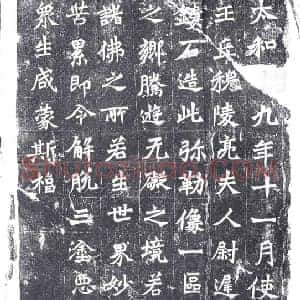 太和 九年十一月使
王丘穆陵亮夫人尉遲
鏤石造此弥勒像一區
之鄉騰遊无礙之境若
諸佛之所若生世界妙
苦累即令解脫三塗惡
眾生咸蒙斯福